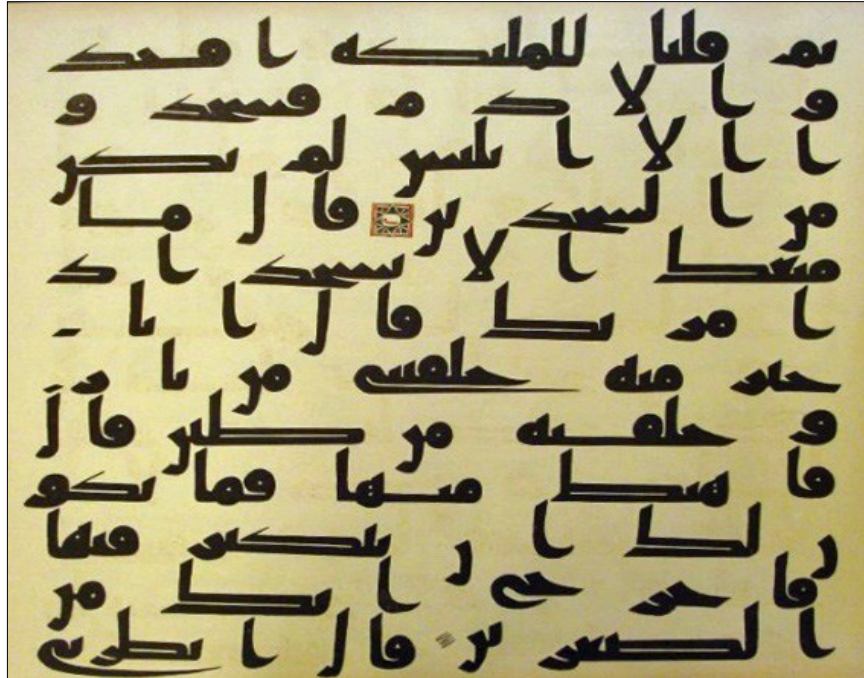 ثم قلنا للملئكه اسجد
وا لادم فسجد و
ا الا ابليس لم يكن
من السجدين قال ما
منعك الا تسجد اذ
امرتك قال انا
خير منه خلقتني من نار
و خلقته من طين قال
فاهبط منها فما يكو
ن لك ان تتكبر فيها
فاخرج انك من
الصغرين قال انظرني